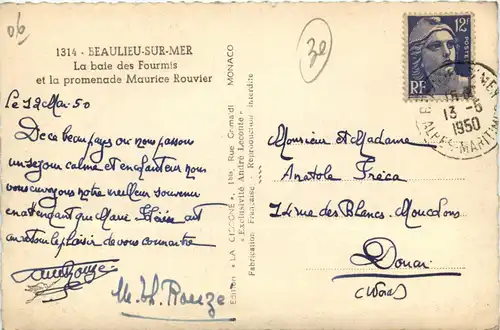 06
30
1314 - BEAULIEU-SUR-MER
La baie des Fourmis
et la promenade Maurice Rouvier
Le 12 Mai 50
De ce beau pays ou nous passons
un sejour calme et enchanteur nous
vous envoyons notre meilleur souvenir
en attendant que Marie Thérèse ait
au retour le plaisir de vous connaitre
M. Th.
Edition "LA CIGOGNE", Rue Grimaldi MONACO
"Exclusivité André Leconte"
Fabrication Française - Reproduction interdite
12F
POSTES
RF
13-5
1950
ALPES-MARITIMES
Monsieur et Madame
Anatole
rue des Blancs Mouchons
Douai
(Nord)